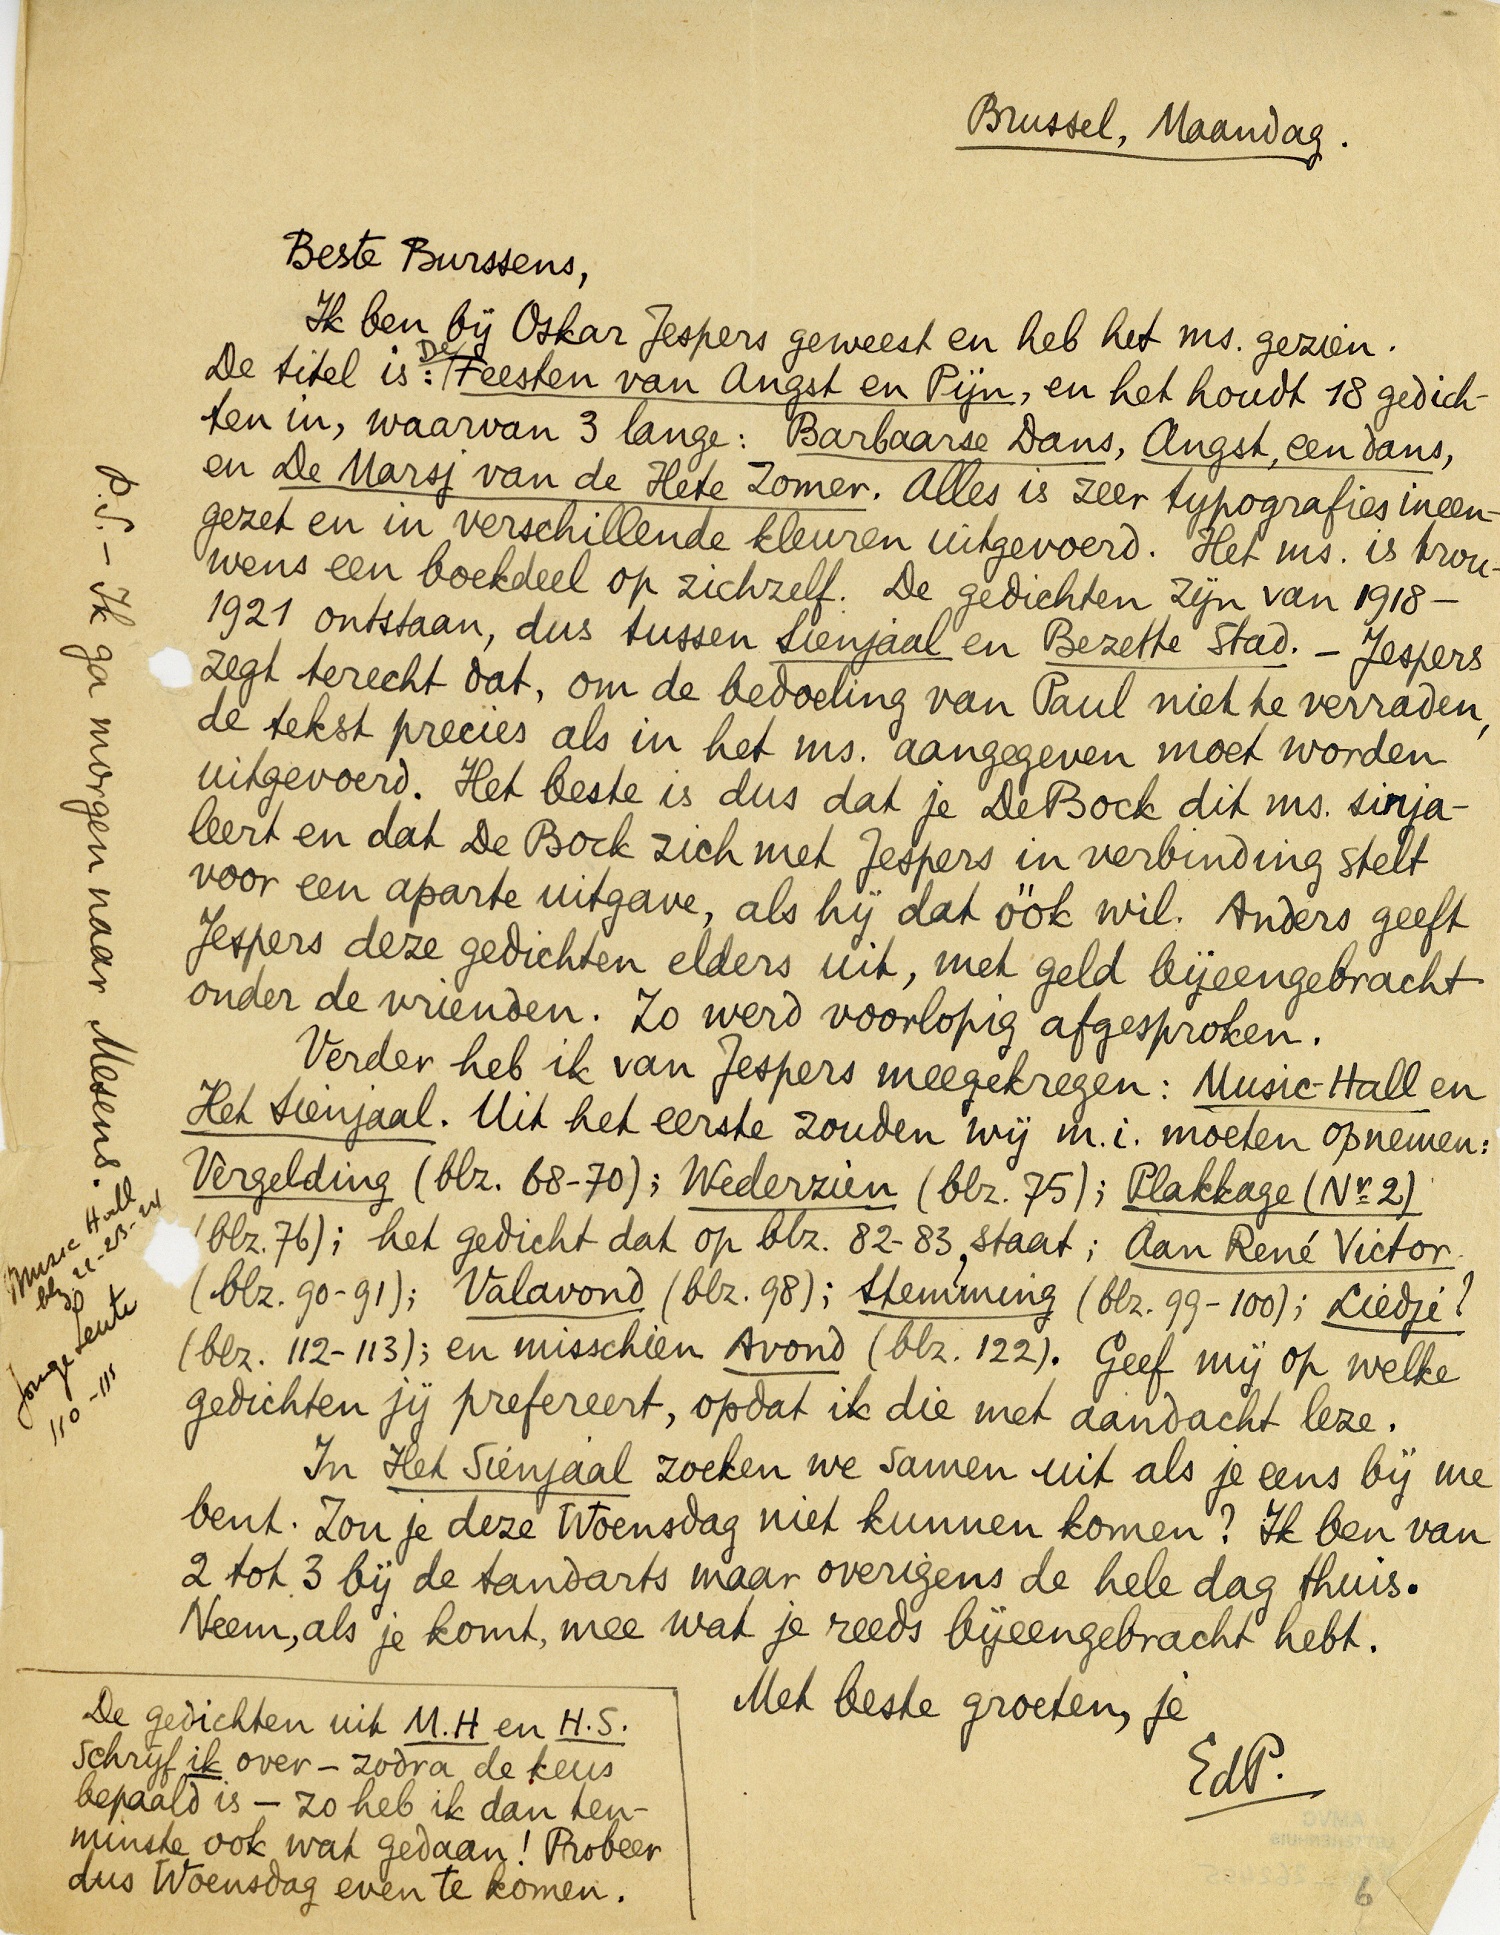 Brussel, Maandag.
Beste Burssens,
Ik ben bij Oskar Jespers geweest en heb het ms. gezien.
De titel is: De Feesten van Angst en Pijn, en het houdt 18 gedich-
ten in, waarvan 3 lange: Barbaarse Dans, Angst, een dans,
en De Marsj van de Hete Zomer. Alles is zeer typografies ineen-
gezet en in verschillende kleuren uitgevoerd. Het ms. is trou-
wens een boekdeel op zichzelf. De gedichten zijn van 1918-
1921 ontstaan, dus tussen Sienjaal en Bezette Stad. - Jespers
zegt terecht dat, om de bedoeling van Paul niet te verraden,
de tekst precies als in het ms. aangegeven moet worden
uitgevoerd. Het beste is dus dat je De Bock dit ms. sinja-
leert en dat De Bock zich met Jespers in verbinding stelt
voor een aparte uitgave, als hij dat öök wil. Anders geeft
Jespers deze gedichten elders uit, met geld bijeengebracht
onder de vrienden. Zo werd voorlopig afgesproken.
Verder heb ik van Jespers meegekregen: Music-Hall en
Het Sienjaal. Uit het eerste zouden wij m.i. moeten opnemen:
Vergelding (blz. 68-70); Wederzien (blz. 75); Plakkage (Nr 2)
(blz. 76); het gedicht dat op blz. 82-83 staat; Aan René Victor
(blz. 90-91); Valavond (blz. 98); Stemming (blz. 99-100); Liedje?
(blz. 112-113); en misschien Avond (blz. 122). Geef mij op welke
gedichten jij prefereert, opdat ik die met aandacht leze.
In Het Sienjaal zoeken we samen uit als je eens bij me
bent. Zou je deze Woensdag niet kunnen komen? Ik ben van
2 tot 3 bij de tandarts maar overigens de hele dag thuis.
Neem, als je komt, mee wat je reeds bijeengebracht hebt.
Met beste groeten, je
EdP.
De gedichten uit M.H en H.S.
schrijf ik over - zodra de keus
bepaald is - zo heb ik dan ten-
minste ook wat gedaan! Probeer
dus Woensdag even te komen.
P.S. - Ik ga morgen naar Mesens.
Music Hall
blz 21-23-24
Jonge Lente
110-111
AMVC
LETTERENHUIS
6